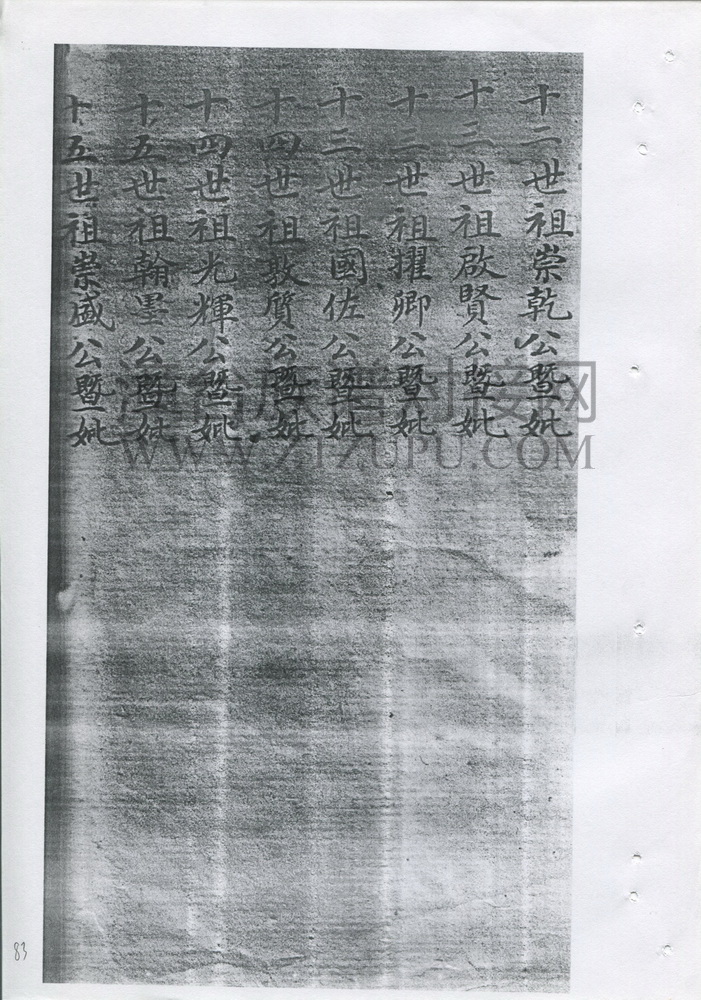 十二世祖崇乾公暨一妣
十三世祖啟賢公暨一妣
十三世祖擢卿公暨一妣
十三世祖國佐公暨一妣
十四世祖敦質公暨一妣
十四世祖光輝公暨一妣
十五世祖翰墨公暨一妣
十五世祖崇盛公暨一妣
漳台族譜对接网
WWW.ZTZUPU.COM
83